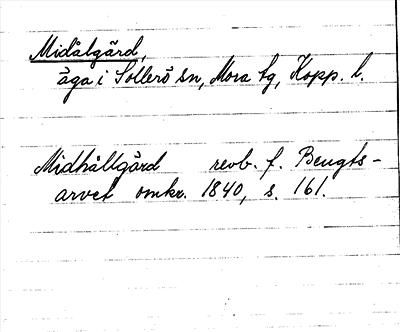 Midålgård,
äga i Sollerö sn, Mora tg, Kopp. l.
Midhållgård revb. f. Bengts-
arvet omkr. 1840, s. 161.